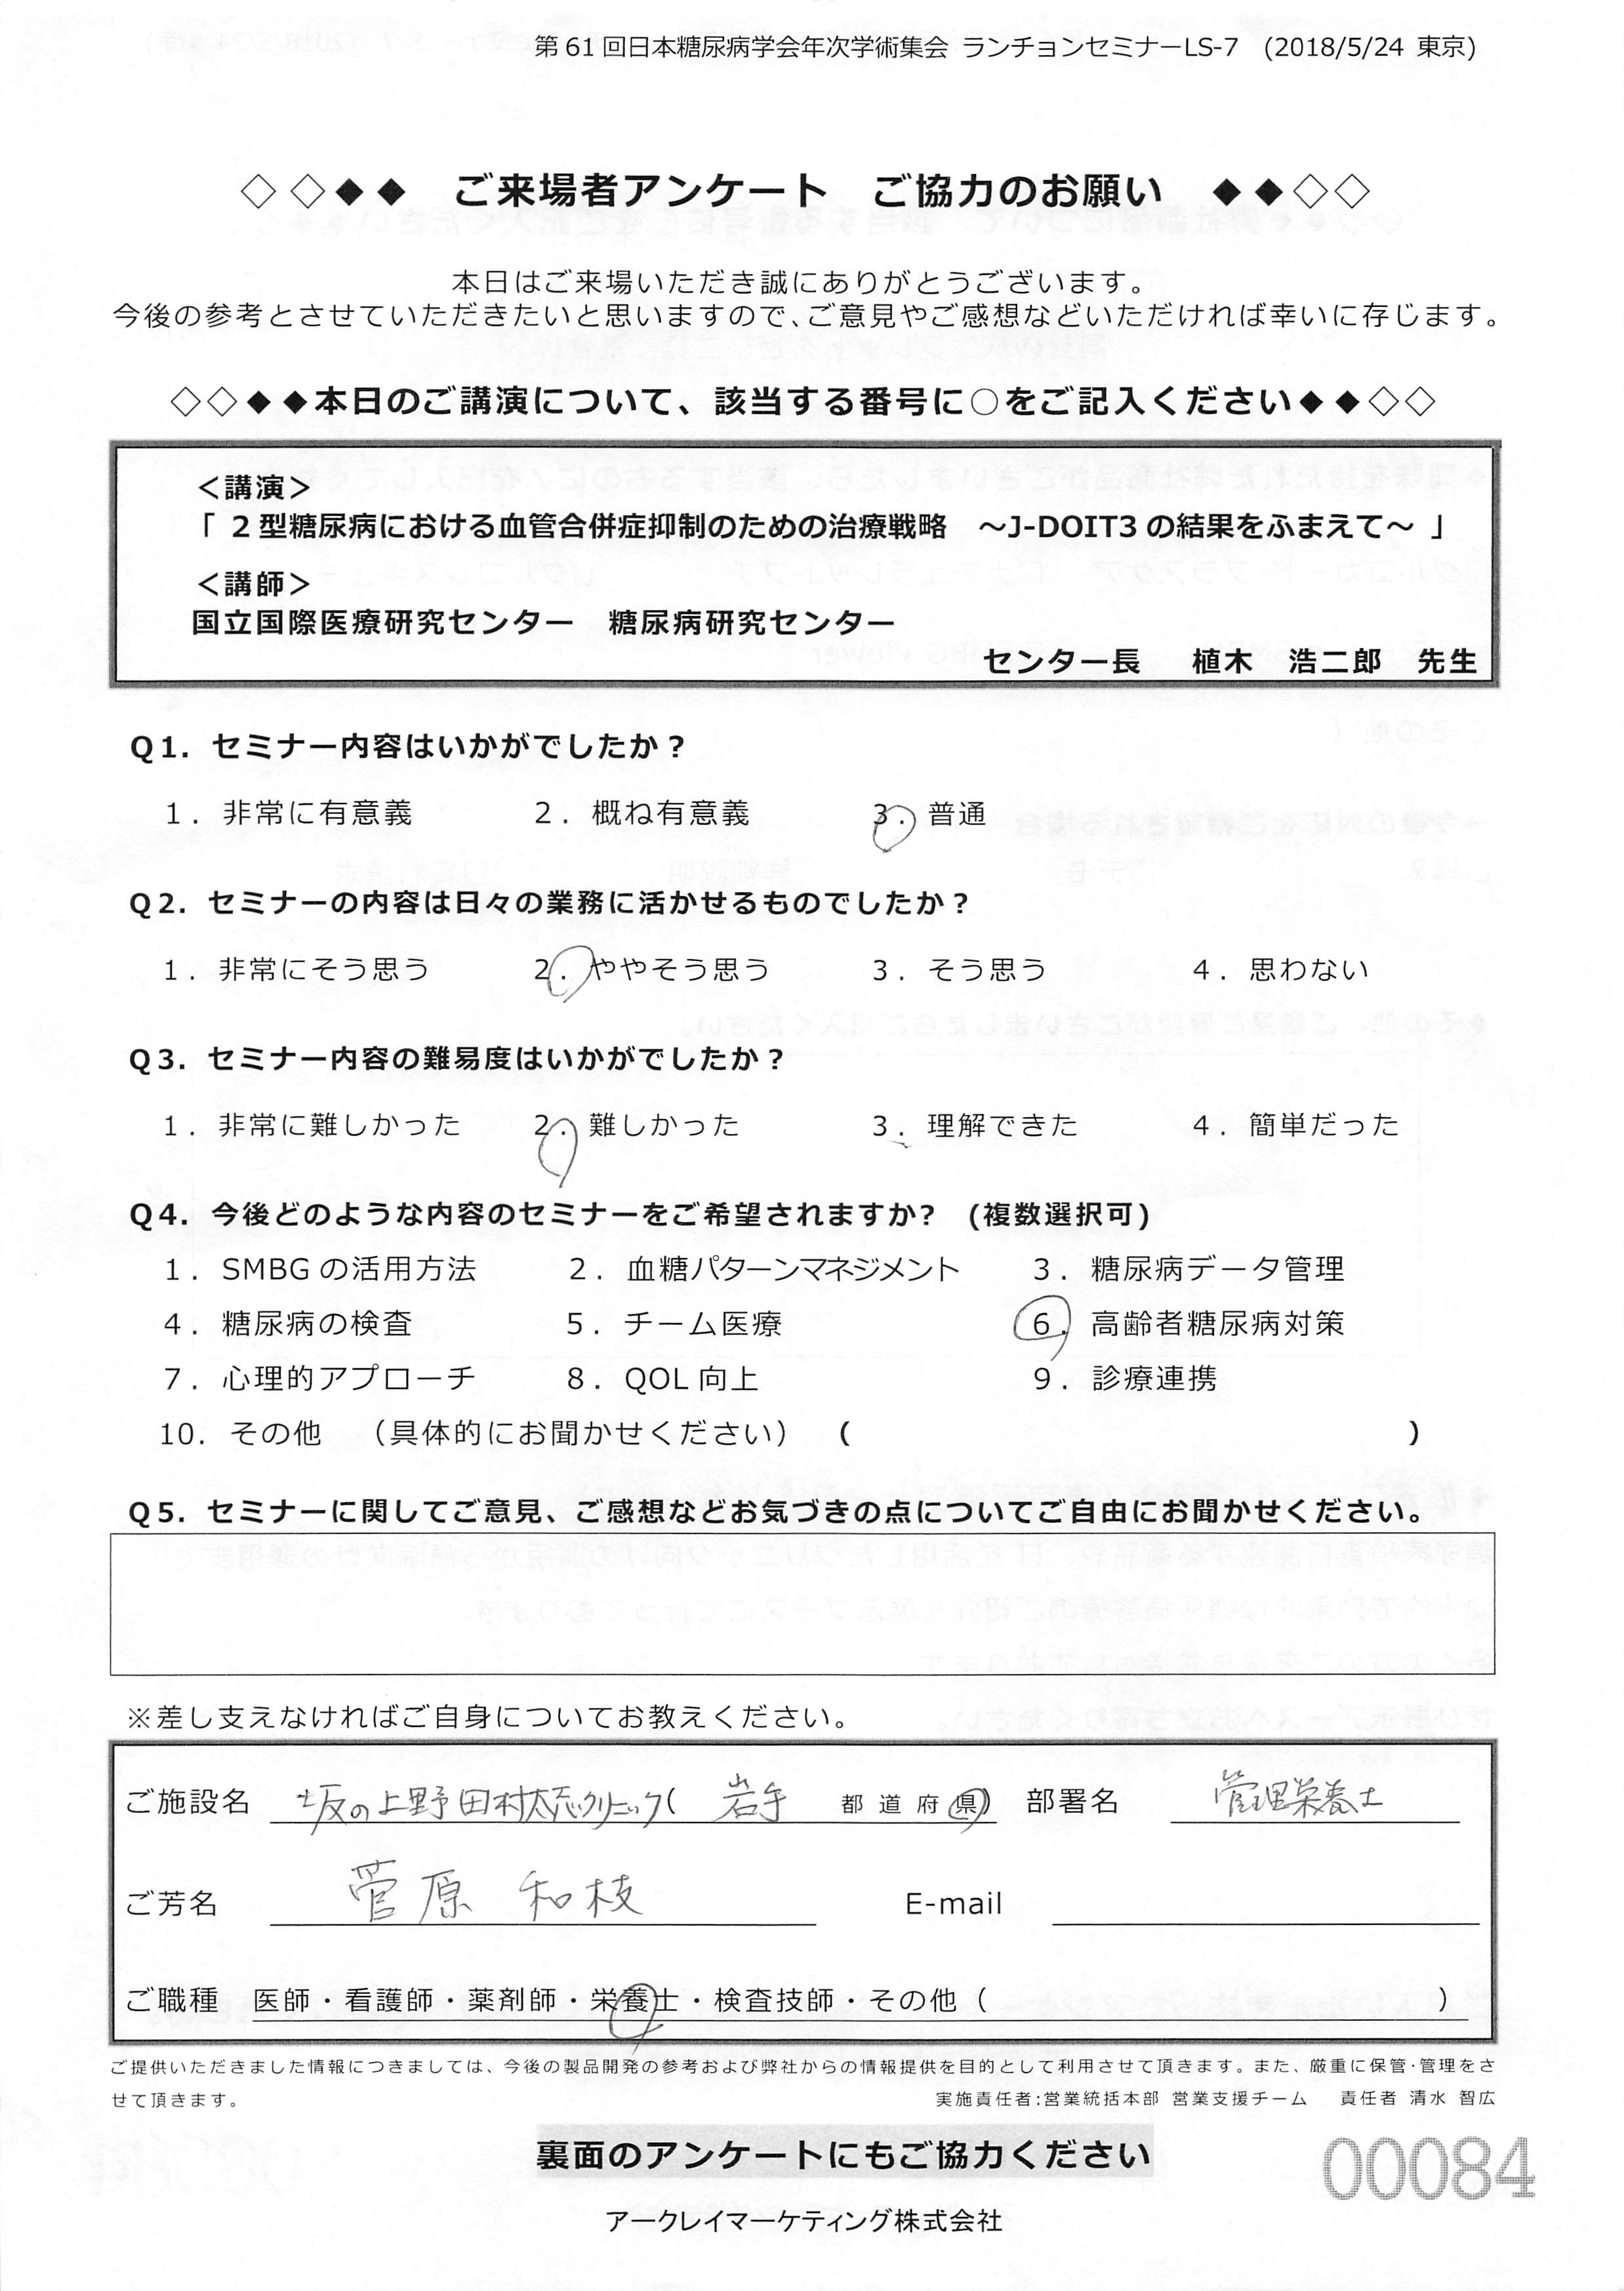 第61回日本糖尿病学会年次学術集会 ランチョンセミナーLS-7 (2018/5/24 東京)
◇◇◆◆ ご来場者アンケート ご協力のお願い ◆◆◇◇
本日はご来場いただき誠にありがとうございます。
今後の参考とさせていただきたいと思いますので、ご意見やご感想などいただければ幸いに存じます。
◇◇◆◆本日のご講演について、該当する番号に○をご記入ください◆◆◇◇
＜講演＞
「 2型糖尿病における血管合併症抑制のための治療戦略 ～J-DOIT3の結果をふまえて～ 」
＜講師＞
国立国際医療研究センター 糖尿病研究センター
センター長 植木 浩二郎 先生
Q1. セミナー内容はいかがでしたか？
1. 非常に有意義 2. 概ね有意義 3. 普通
Q2. セミナーの内容は日々の業務に活かせるものでしたか？
1. 非常にそう思う 2. ややそう思う 3. そう思う 4. 思わない
Q3. セミナー内容の難易度はいかがでしたか？
1. 非常に難しかった 2. 難しかった 3. 理解できた 4. 簡単だった
Q4. 今後どのような内容のセミナーをご希望されますか? (複数選択可)
1. SMBGの活用方法 2. 血糖パターンマネジメント 3. 糖尿病データ管理
4. 糖尿病の検査 5. チーム医療 6. 高齢者糖尿病対策
7. 心理的アプローチ 8. QOL向上 9. 診療連携
10. その他 （具体的にお聞かせください） ( )
Q5. セミナーに関してご意見、ご感想などお気づきの点についてご自由にお聞かせください。
※差し支えなければご自身についてお教えください。
ご施設名 坂の上野田村太志クリニック( 岩手 都 道 府 県) 部署名 管理栄養士
ご芳名 菅原 和枝 E-mail
ご職種 医師・看護師・薬剤師・栄養士・検査技師・その他（ ）
ご提供いただきました情報につきましては、今後の製品開発の参考および弊社からの情報提供を目的として利用させて頂きます。また、厳重に保管・管理をさ
せて頂きます。 実施責任者:営業統括本部 営業支援チーム 責任者 清水 智広
裏面のアンケートにもご協力ください
00084
アークレイマーケティング株式会社